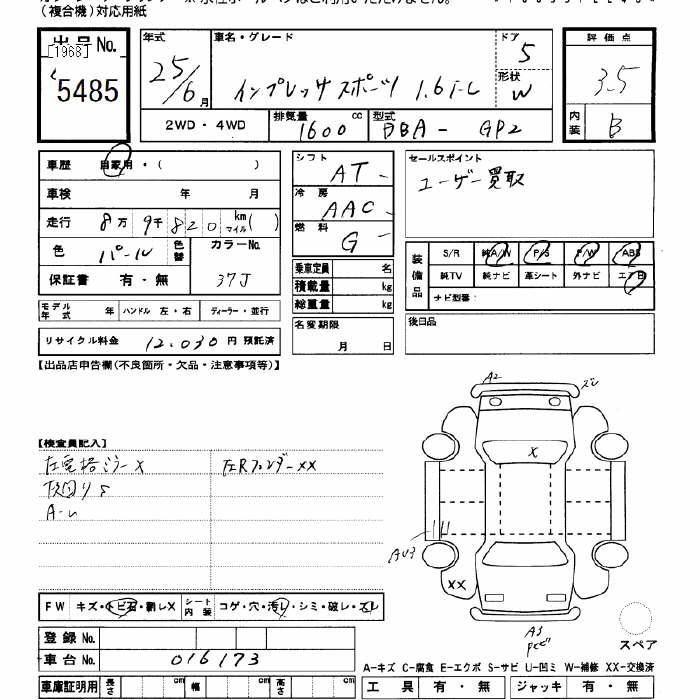 （複合機）対応用紙
出品No.
[1968]
5485
年式
25/6月
車名・グレード
インプレッサスポーツ 1.6i-L
ドア
5
形状
W
評価点
3.5
内装
B
2WD・4WD
排気量
1600 cc
型式
DBA- GP2
車歴 自家用・( )
車検 年 月
走行 8万 9千 820 km マイル( )
色 パール 色替
カラーNo.
37J
保証書 有・無
モデル年式 年 ハンドル 左・右 ディーラー・並行
リサイクル料金 12,030 円 預託済
シフト AT
冷房 AAC
燃料 G
乗車定員 名
積載量 kg
総重量 kg
名変期限
月 日
セールスポイント
ユーザー買取
装備品
S/R 純A/W P/S P/W ABS
純TV 純ナビ 革シート 外ナビ エアB
ナビ型番:
後日品
【出品店申告欄(不良箇所・欠品・注意事項等)】
【検査員記入】
左電格ミラーX 左Rフェンダー XX
A-し
A2
ズレ
X
AU3
XX
A3
スペア
FW キズ・トビ石・割レX シート内装 コゲ・穴・汚レ・シミ・破レ・スレ
登録No.
車台No. 016173
車庫証明用 長さ cm 幅 cm 高さ cm
A-キズ C-腐食 E-エクボ S-サビ U-凹ミ W-補修 XX-交換済
工具 有・無 ジャッキ 有・無